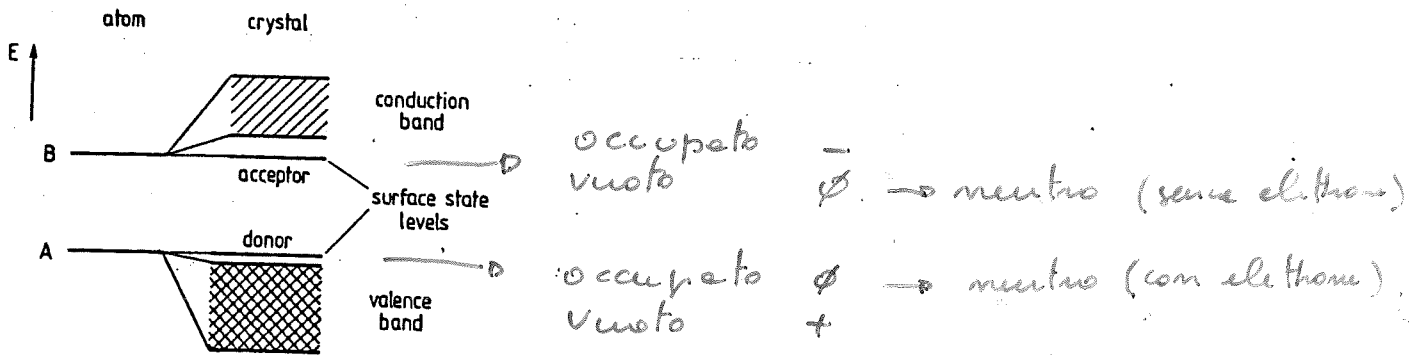 atom crystal
E
conduction band
B
acceptor
surface state levels
donor
A
valence band
occupato -
vuoto ø → neutro (senza elettrone)
occupato ø → neutro (con elettrone).
vuoto +